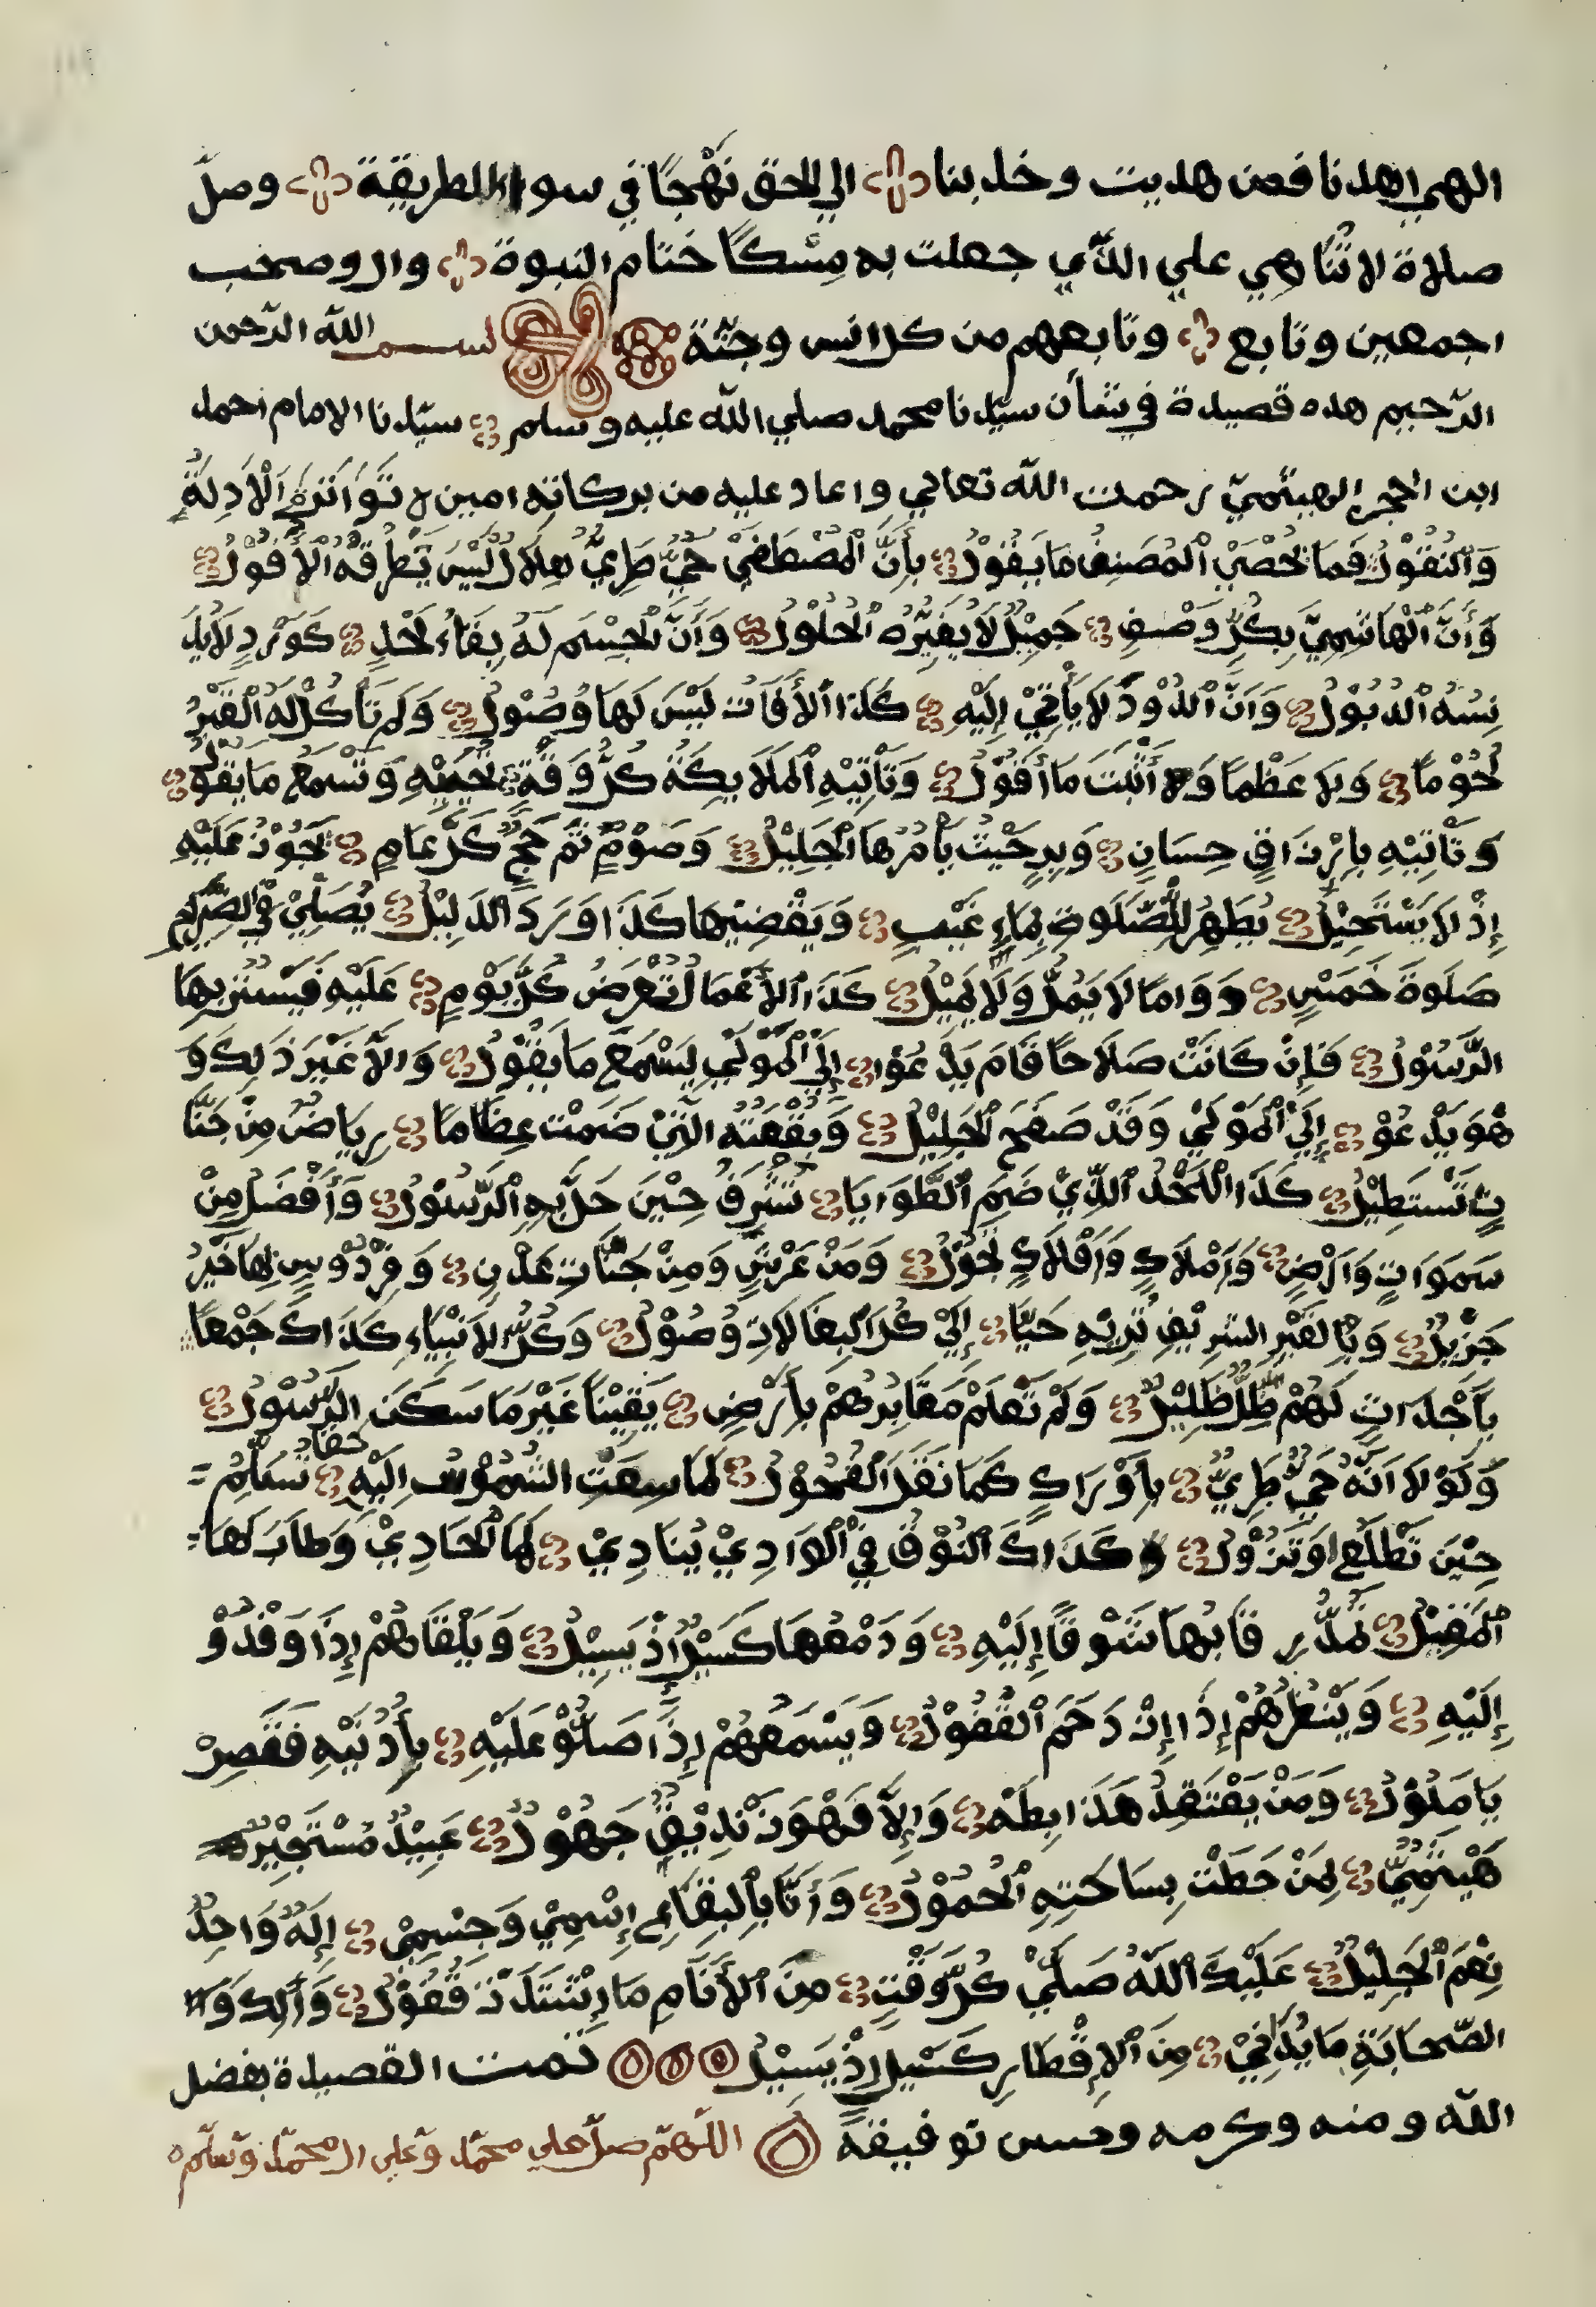 الهي اهدنا فمن هديت وخذ بنا الي الحق نَهْجًا في سواء الطريقة وصلّ
صلاة لا تُنَاهِي علي الذّي جعلت به مِسْكًا ختام النبوة وال وصحب
اجمعين وتابع وتابعهم من كل انس وجنّة بسم الله الرّحمن
الرّحيم هده قصيدة في شأن سيّدنا محمد صلي الله عليه وسلم سيّدنا الامام احمد
ابن الحجر الهيتميّ رحمت الله تعالي واعاد عليه من بركاته امين تَوَاتَرَتِ الْأَدِلَةُ
وَالنُقُوْلُ فَمَا يُحْصَيْ الْمُصَنِفُ مَا يَقُوْلُ بِأَنَّ الْمُصْطَفَيْ حَيٌّ طَرِيٌّ هِلَالٌ لَيْسَ يَطْرُقُهُ الْأُفُوْلُ
وَأَنَّ الْهَاشِمِيَّ بِكُلِّ وَصْفٍ جَمِيْلٌ لَا يُغَيِّرُهُ الْحُلُوْلُ وَأَنَّ الْجِسْمَ لَهُ بِقَاءُ لَحْدٍ كَوَرْدٍ لَايُدَ
نِسُهُ الْدُبُوْلُ وَأَنَّ الْدُوْدَ لَا يَأْتِيْ إِلَيْهِ كَذَا الْأَفَاتُ لَيْسَ لَهَا وُصُوْلُ وَلَمْ تَأْكُلْ لَهُ الْقَبْرُ
لُحُوْمًا وَلَا عَظْمًا وَلَا أَثْبَتَ مَا أَقُوْلُ وَتَأْتِيْهِ الْمَلَايِكَةُ كُلَّ وَقْةٍ تُحَيِّيْهِ وَتَسْمَعُ مَا يَقُوْلُ
وَتَأْتِيْهِ بِاِرْزَاقٍ حِسَانٍ وَبِرٍ حَيْثُ يَأْمُرُهَا الْجَلِيْلُ وَصَوْمٌ ثُمَّ حَجٌّ كُلَّ عَامٍ يَجُوْزُ عَلَيْهِ
إِذْ لَا يَسْتَحِيْلُ يُطَهِرُ لِلصَّلَوةِ بِمَاءِ غَيْبٍ وَيَقْضِيْهَا كَذَا وَرَدَ الدَلِيْلُ يُصَلِّيْ فِي الضَّرِيْحِ
صَلَوةَ خَمْسٍ دَوَامًا لَا يَمُلُّ وَلَا يَمِيْلُ كَذَا الْأَعْمَالُ تُعْرَضُ كُلَّ يَوْمٍ عَلَيْهِ فَيُسْتَرُ بِهَا
الرَّسُوْلُ فَإِنْ كَانَتْ صَلَاحًا قَامَ يَدْعُوْا إِلَي الْمَوْلَيْ لِيَسْمَعَ مَا يَقُوْلُ وَالاَّ غَيْرَ ذَلِكَ وَ
هْوَ يَدْعُوْ إِلَيْ الْمَوْلَيْ وَقَدْ صَفَحَ الْجَلِيْلُ وَبُقْعَتُهُ الَّتِيْ ضَمَتْ عِظَامًا رِيَاضٌ مِنْ جَنَّا
تٍ تَسْتَطِيْلُ كَذَا اللَحْدُ الَّذِيْ ضَمَ الطَّوَايَا تَشَرَفَ حِيْنَ حَلَّ بِهِ الرَّسُوْلُ وَأَفْضَلُ مِنْ
سَمَوَاتٍ وَأَرْضٍ وَأَمْلَاكٍ وَأَفْلَاكٍ تَجُوْلُ وَمَنْ عَرْشٍ وَمِنْ جَنَّاتِ عَدْنٍ وَفِرْدَوْسٍ بِهَا خَيْرُ
جَزِيْلُ وَبِالقَبْرِ الشَرِيْفِ تَرَيْهِ حَيًّا إِلَيْ كُلِّ الْبِقَالِ لَاِدِّ وُصُوْلُ وَكُلُّ الاَنْبِيَاءِ كَذَاكَ جَمْعًا
بِأَجْدَاثٍ لَهُمْ ظِلٌّ ظَلِيْلُ وَلَمْ نَعْلَمْ مَقَابِرُهُمْ بِأَرْضٍ يَقِيْنًا غَيْرَ مَا سَكَنَ الرَّسُوْلُ
وَلَوْ لَا اَنَّهُ حَيٌّ طَرِيٌّ بِاَوْرَاكٍ كَمَا نَقَلَ الْفُحُوْلُ لَمَا سِعَتِ الشُمُوْسُ اِلَيْهِ حقا تُسَلِّمُ =
حِيْنَ تَطْلَعُ اوْتَزُوْلُ كَذَاكَ النُوْقُ فِي الْوَادِيْ يُنَادِيْ لَهَا الْحَادِيْ وَطَابَ لَهَا =
الْمَقِيْلُ تَمُدُّ رِقَابُهَا شَوْقًا إِلَيْهِ وَدَمْعُهَا كَسَيْلٍ إِذْ يَسِيْلُ وَيَلْقَاهُمْ إِذَا وَفَدُوْ
إِلَيْهِ وَيَنْظُرُهُمْ إِذَا إِنْ دَحَمَ الْقُفُوْلُ وَيَسْمَعُهُمْ إِذَا صَلُّوْ عَلَيْهِ بِأُدْنَيْهِ فَقَصِرْ
يَا مَلُوْلُ وَمَنْ يَعْتَقِدْ هَذَا بِطَهَ وَإِلاَّ فَهْوَ زِنْدِيْقٌ جَهُوْلُ عَبِيْدٌ مُسْتَجِيْرٌ
هَيْتَمِيٌّ لِمَنْ حَطَتْ بِسَاحَتِهِ الْحُمُوْلُ وَأَنَّا بِالْبِقَاعِ إِسْمِيْ وَجِسْمِيْ إِلَهٌ وَاحِدٌ
نِعْمَ الْجَلِيْلُ عَلَيْكَ اللهُ صَلَّيْ كُلَّ وَقْتٍ مِنَ الْأَنَامِ مَا اِشْتَدَّتْ قُفُوْلُ وَآلِكَ وَا
الصَّحَابَةِ مَا يُدَانِيْ مِنَ الْاِقْطَارِ كَسَيْلٍ إِذْ يَسِيْلُ تمت القصيدة بفضل
الله ومنه وكرمه وحسن توفيقهً اللّهمّ صلّ علي محمّد وعلي ال محمّد وسلّم